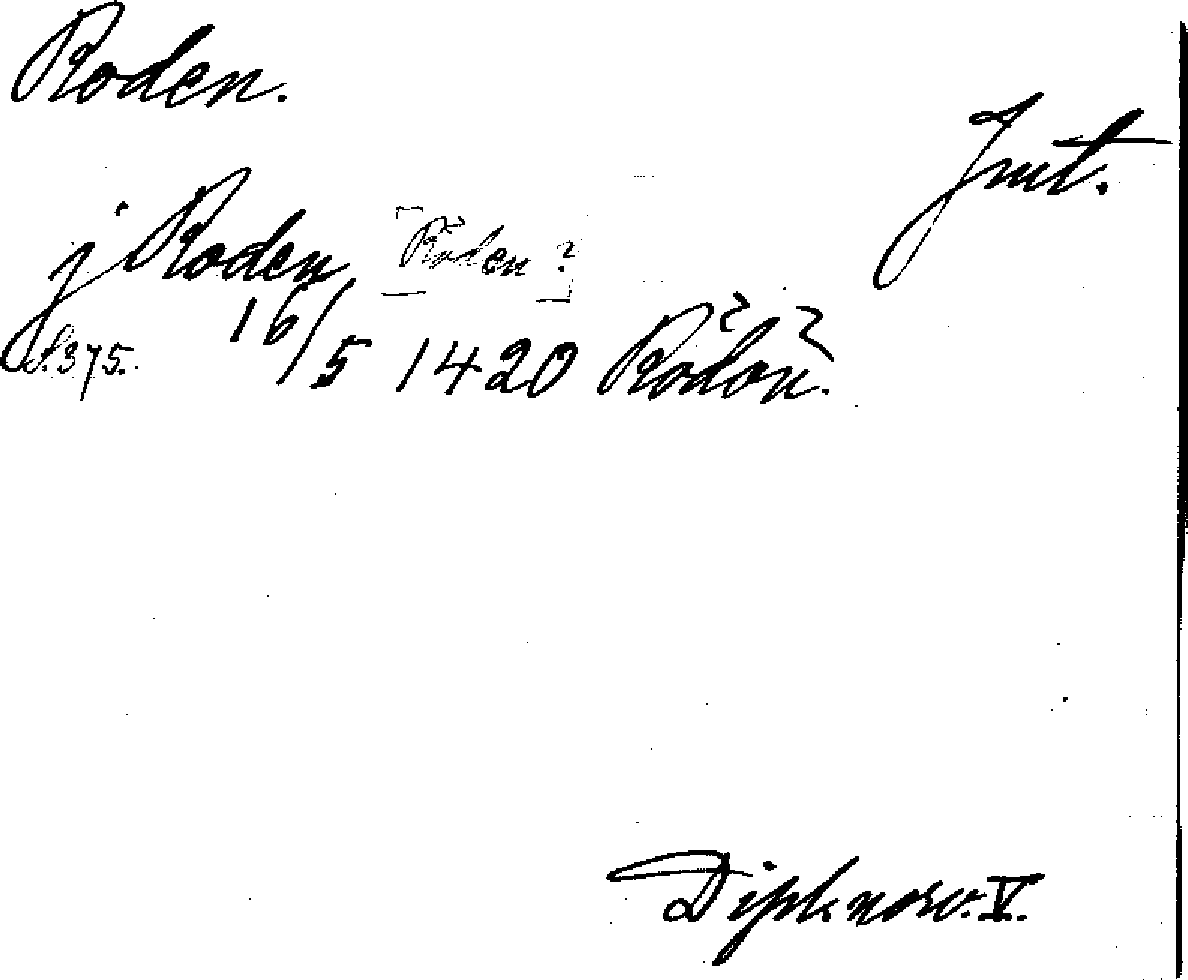 Roden.
Jmt.
j Roden [Roden?]
S. 375. 16/5 1420 Rödön.
Dipl. norv. V.